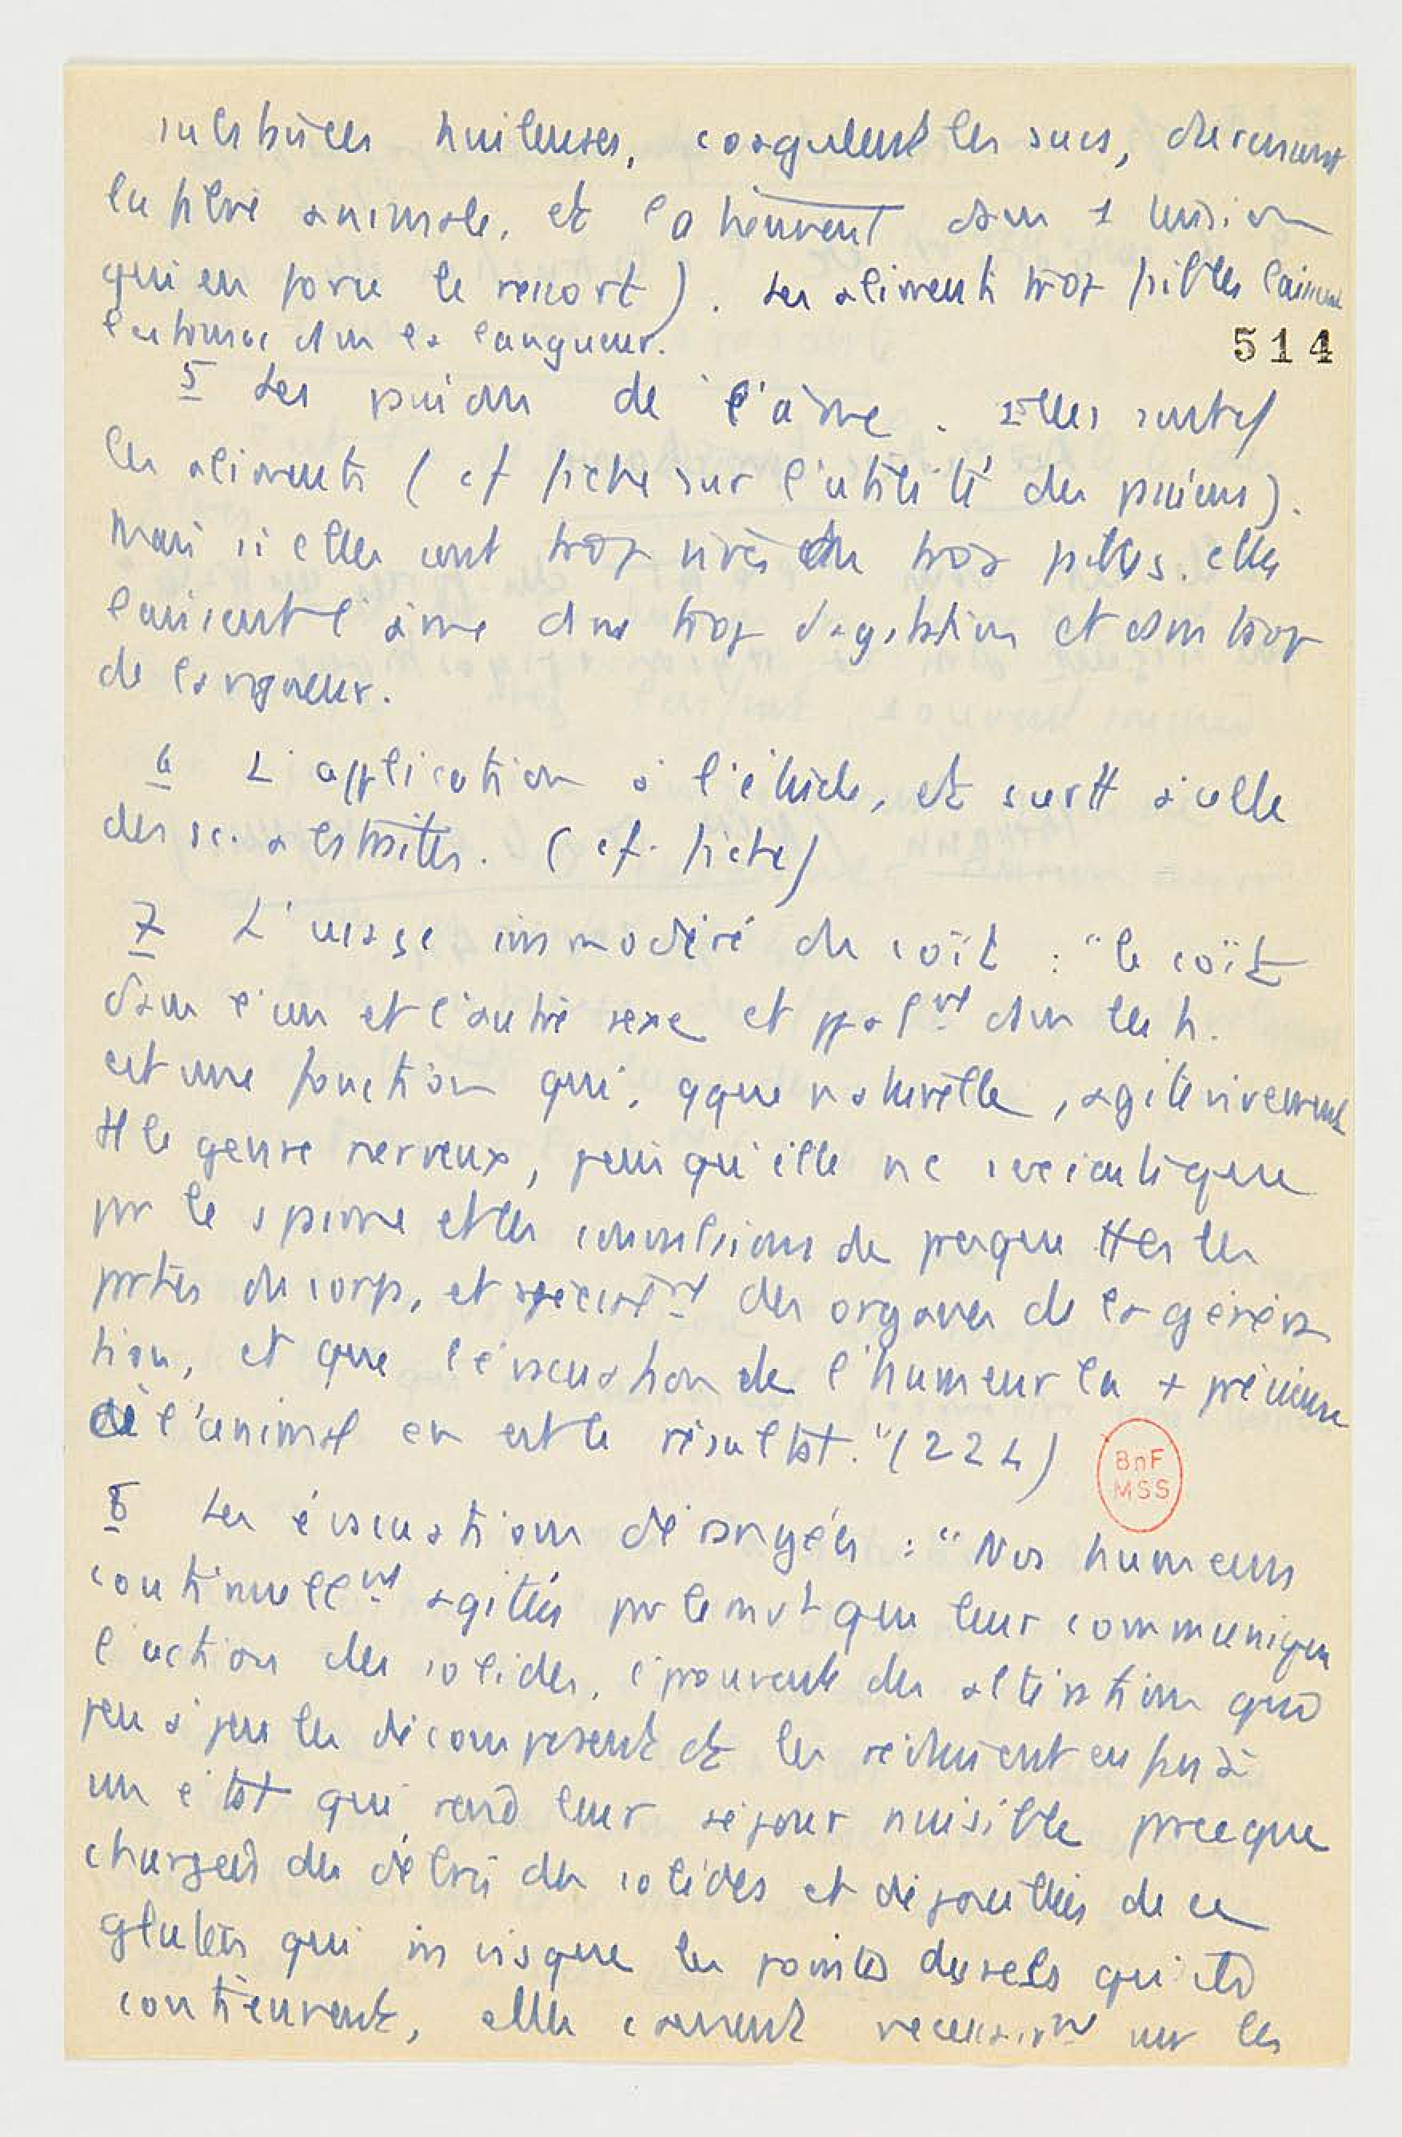 huileuses, coagulent les sucs,
la fibre animale, et la tiennent dans 1 tension
qui en force le ressort). Les aliments trop faibles laissent
l'estomac dans la langueur.
514
5 Les passions de l'âme. Elles sont cf
les aliments (cf fiche sur l'utilité des passions).
Mais si elles sont trop vives ou trop faibles. elles
laissent l'âme dans trop d'agitation et dans trop
de langueur.
6 L'application à l'étude, et surtt à celle
des sc. abstraites. (cf. fiche)
7 L'usage immodéré du coït : "le coït
dans l'un et l'autre sexe et ppalnt dans les h.
est une fonction qui, qque naturelle, agite vivement
tt le genre nerveux, puisqu'elle ne s'exécute que
pr le spasme et les convulsions de presque ttes les
prties du corps, et spécialnt des organes de la généra
tion, et que l'évacuation de l'humeur la + précieuse
de l'animal en est le résultat." (224)
BnF
MSS
8 Les évacuations dérangées : "Nos humeurs
continuellnt agitées pr le mvt que leur communique
l'action des solides, éprouvent des altérations qui
peu à peu les décomposent et les réduisent enfin à
un état qui rend leur séjour nuisible presque
chargées des débris des solides et dépouillées de ce
gluten qui invisque les pointes des sels qu'ils
contiennent, elles nécessairnt sur les